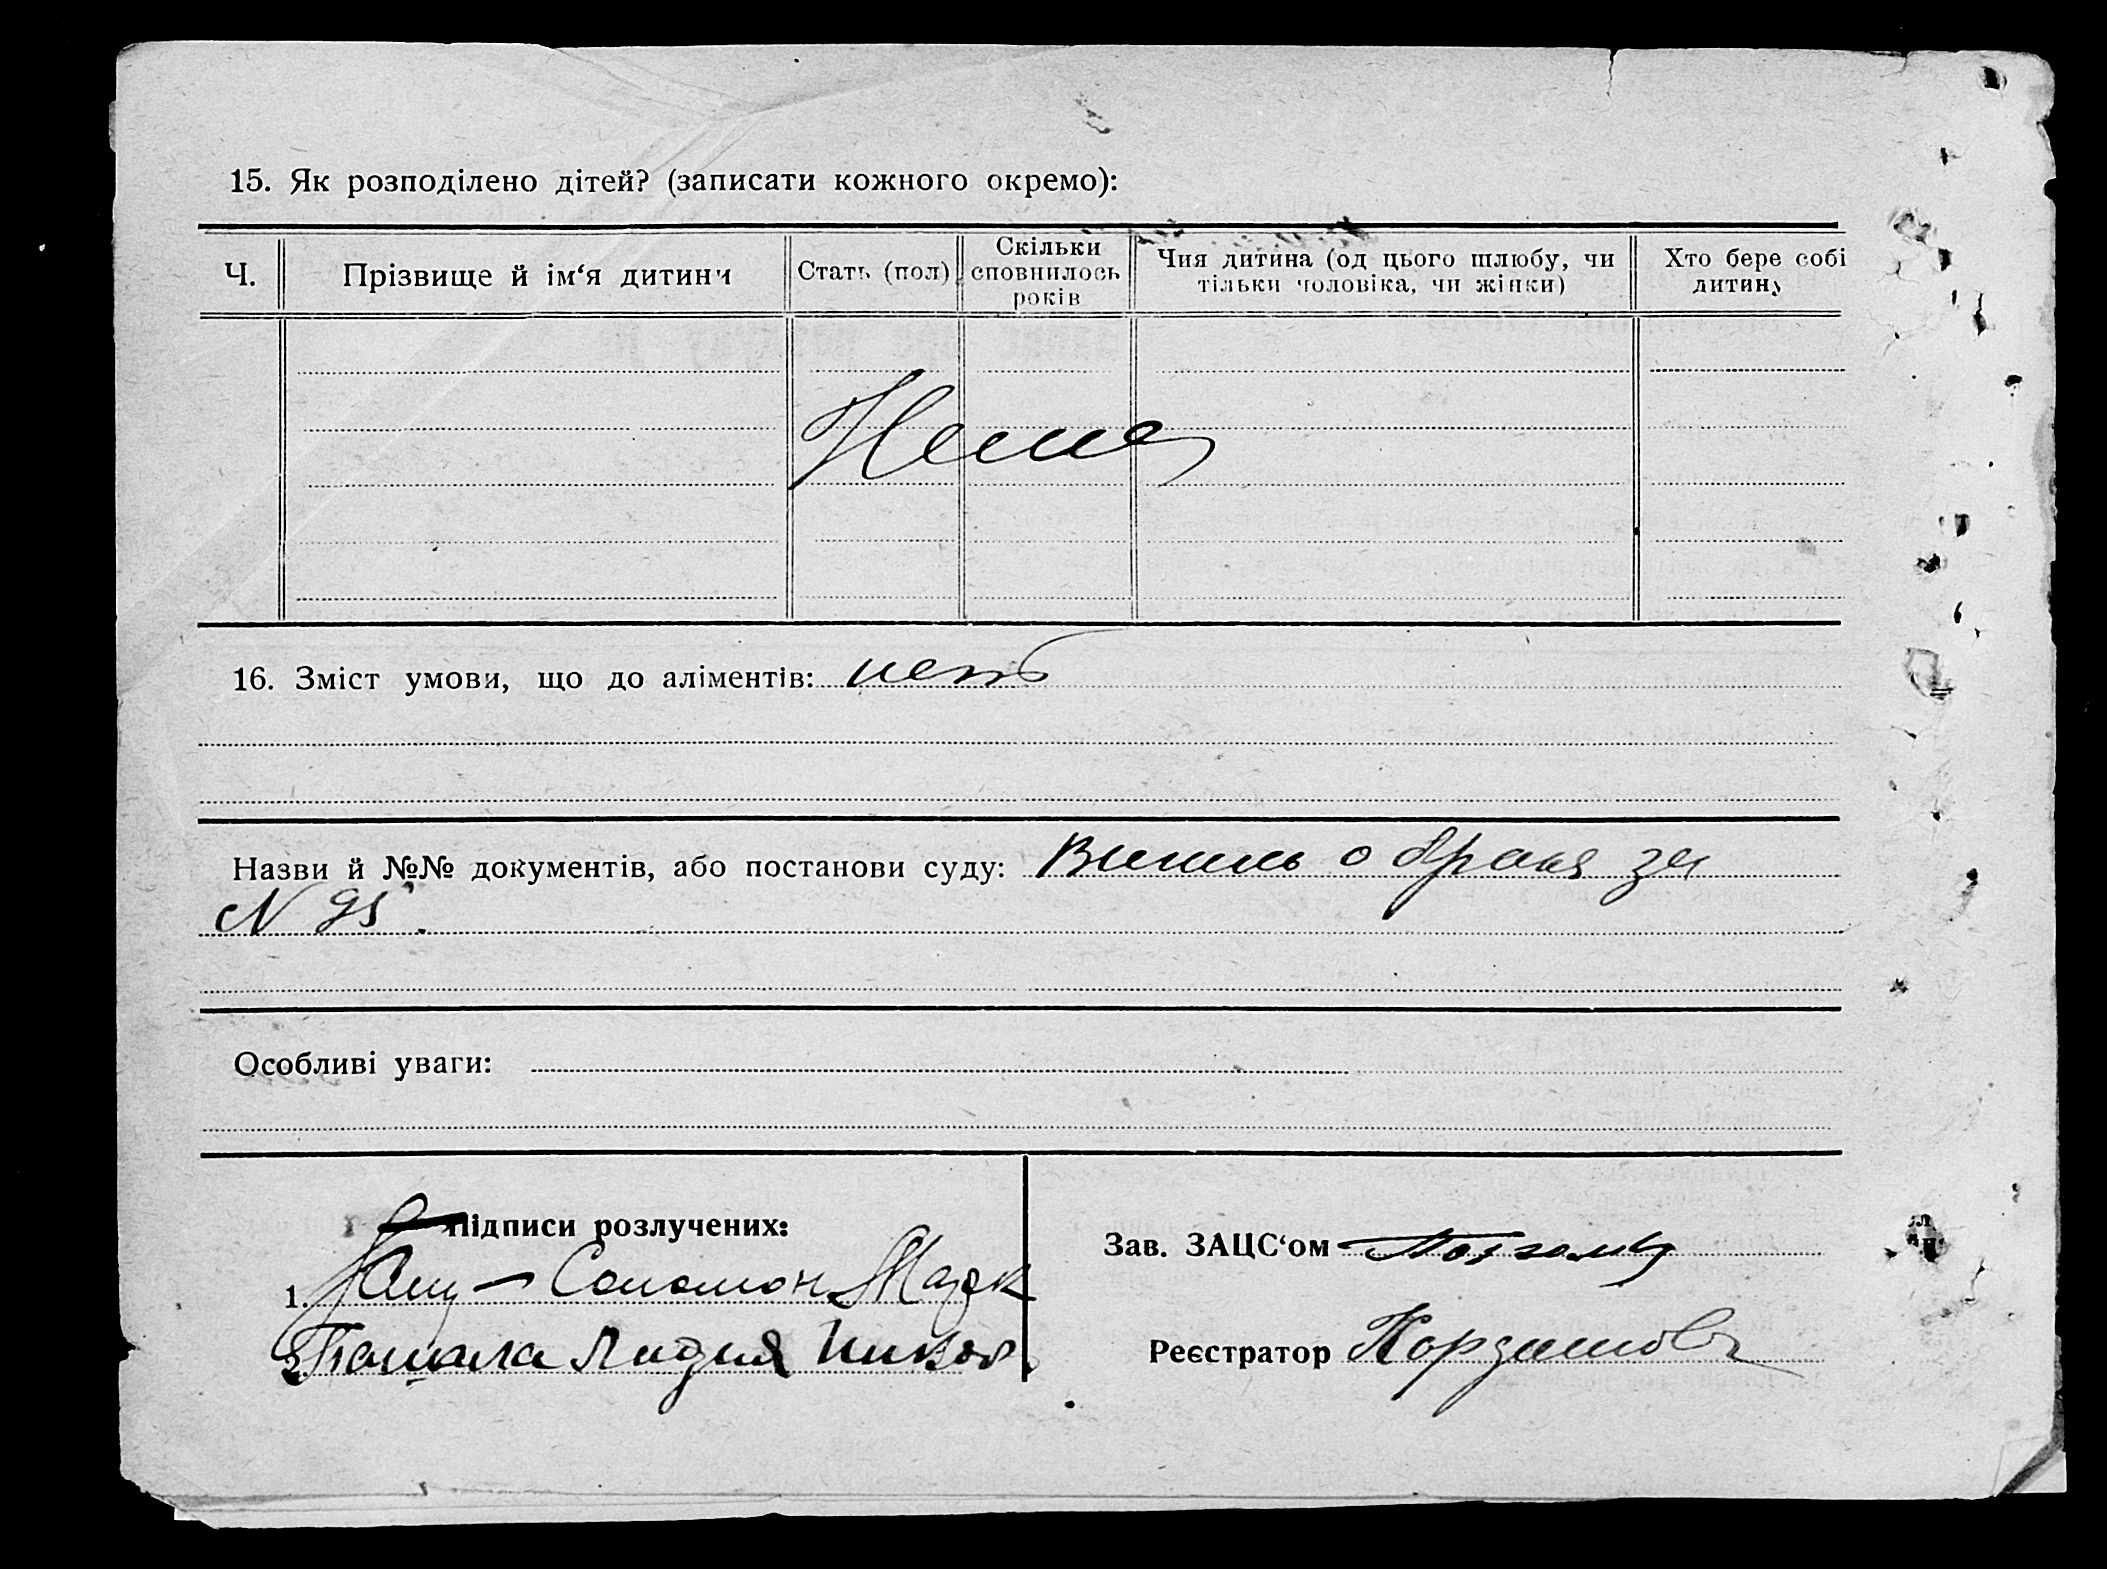 15. Як розподілено дітей? (записати кожного окремо):
Ч. Прізвище й ім‘я дитини Стать (пол) Скільки сповнилось років Чия дитина (од цього шлюбу, чи тільки чоловіка, чи жінки) Хто бере собі дитину
16. Зміст умови, що до аліментів: нет
Назви й №№ документів, або постанови суду: о браке за
N 95.
Особливі уваги:
Підписи розлучених:
1. Соломон Марк
2. Лидия
Зав. ЗАЦС‘ом
Реєстратор